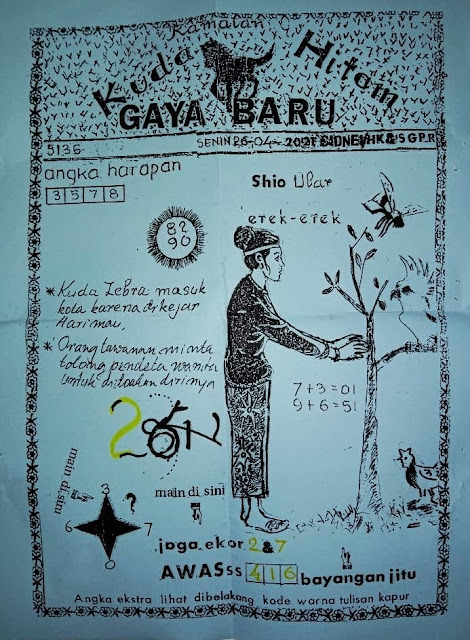 Ramalan
Kuda Hitam
GAYA BARU
5136
SENIN 26-04-2021 SIDNEY HK & SGP.R
angka harapan
3 5 7 8
Shio Ular
erek-erek
82
90
* Kuda Zebra masuk
kota karena dikejar
Harimau,
* Orang tawanan minta
tolong pendeta wanita
untuk ditoakan dirinya
7+3=01
9+6=51
main di sini
main di sini
3
?
6
7
jaga ekor 2 & 7
AWASss 4 1 6 bayangan jitu
Angka ekstra lihat dibelakang kode warna tulisan kapur